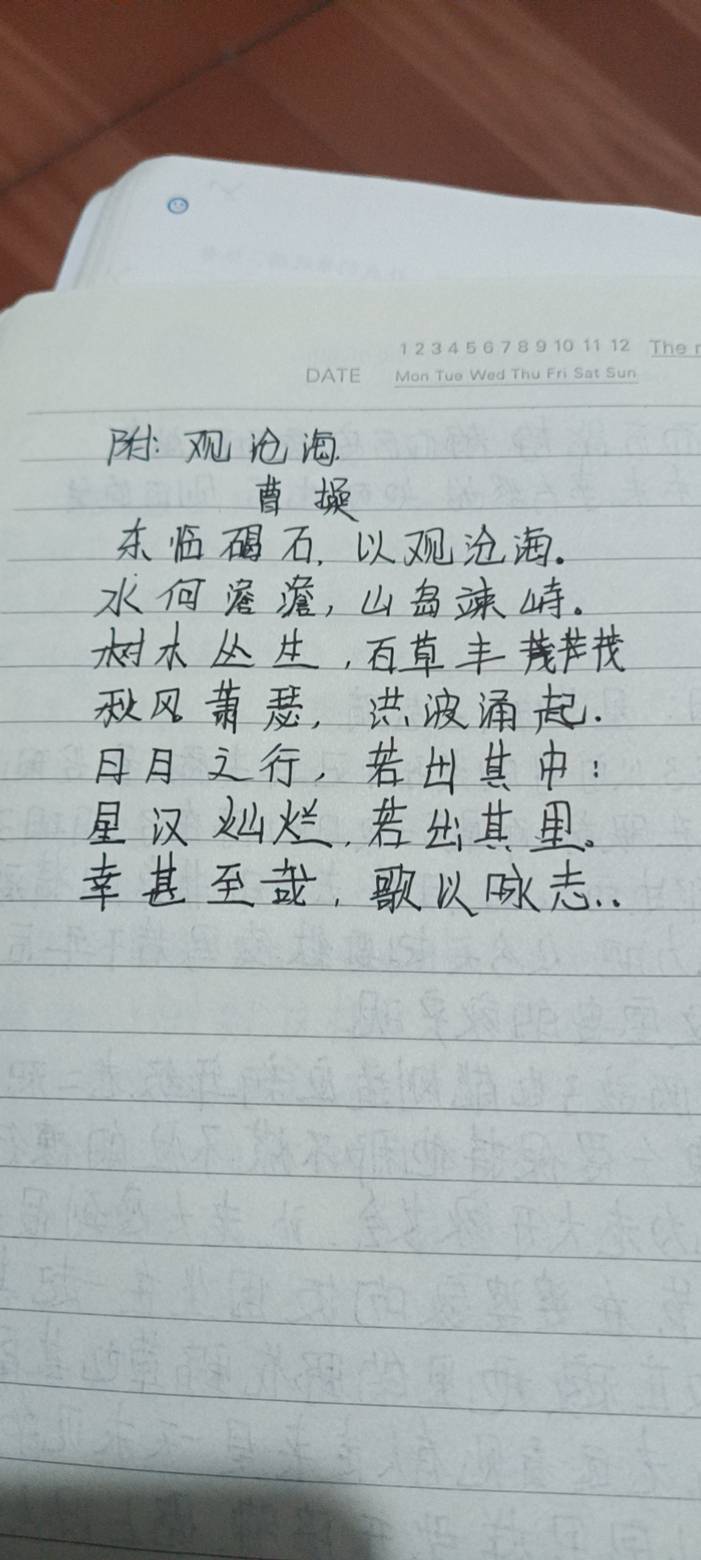 1 2 3 4 5 6 7 8 9 10 11 12 The
DATE Mon Tue Wed Thu Fri Sat Sun
附: 观沧海.
曹操
东临碣石, 以观沧海。
水何澹澹, 山岛竦峙。
树木丛生, 百草丰茂
秋风萧瑟, 洪波涌起.
日月之行, 若出其中:
星汉灿烂, 若出其里。
幸甚至哉, 歌以咏志..